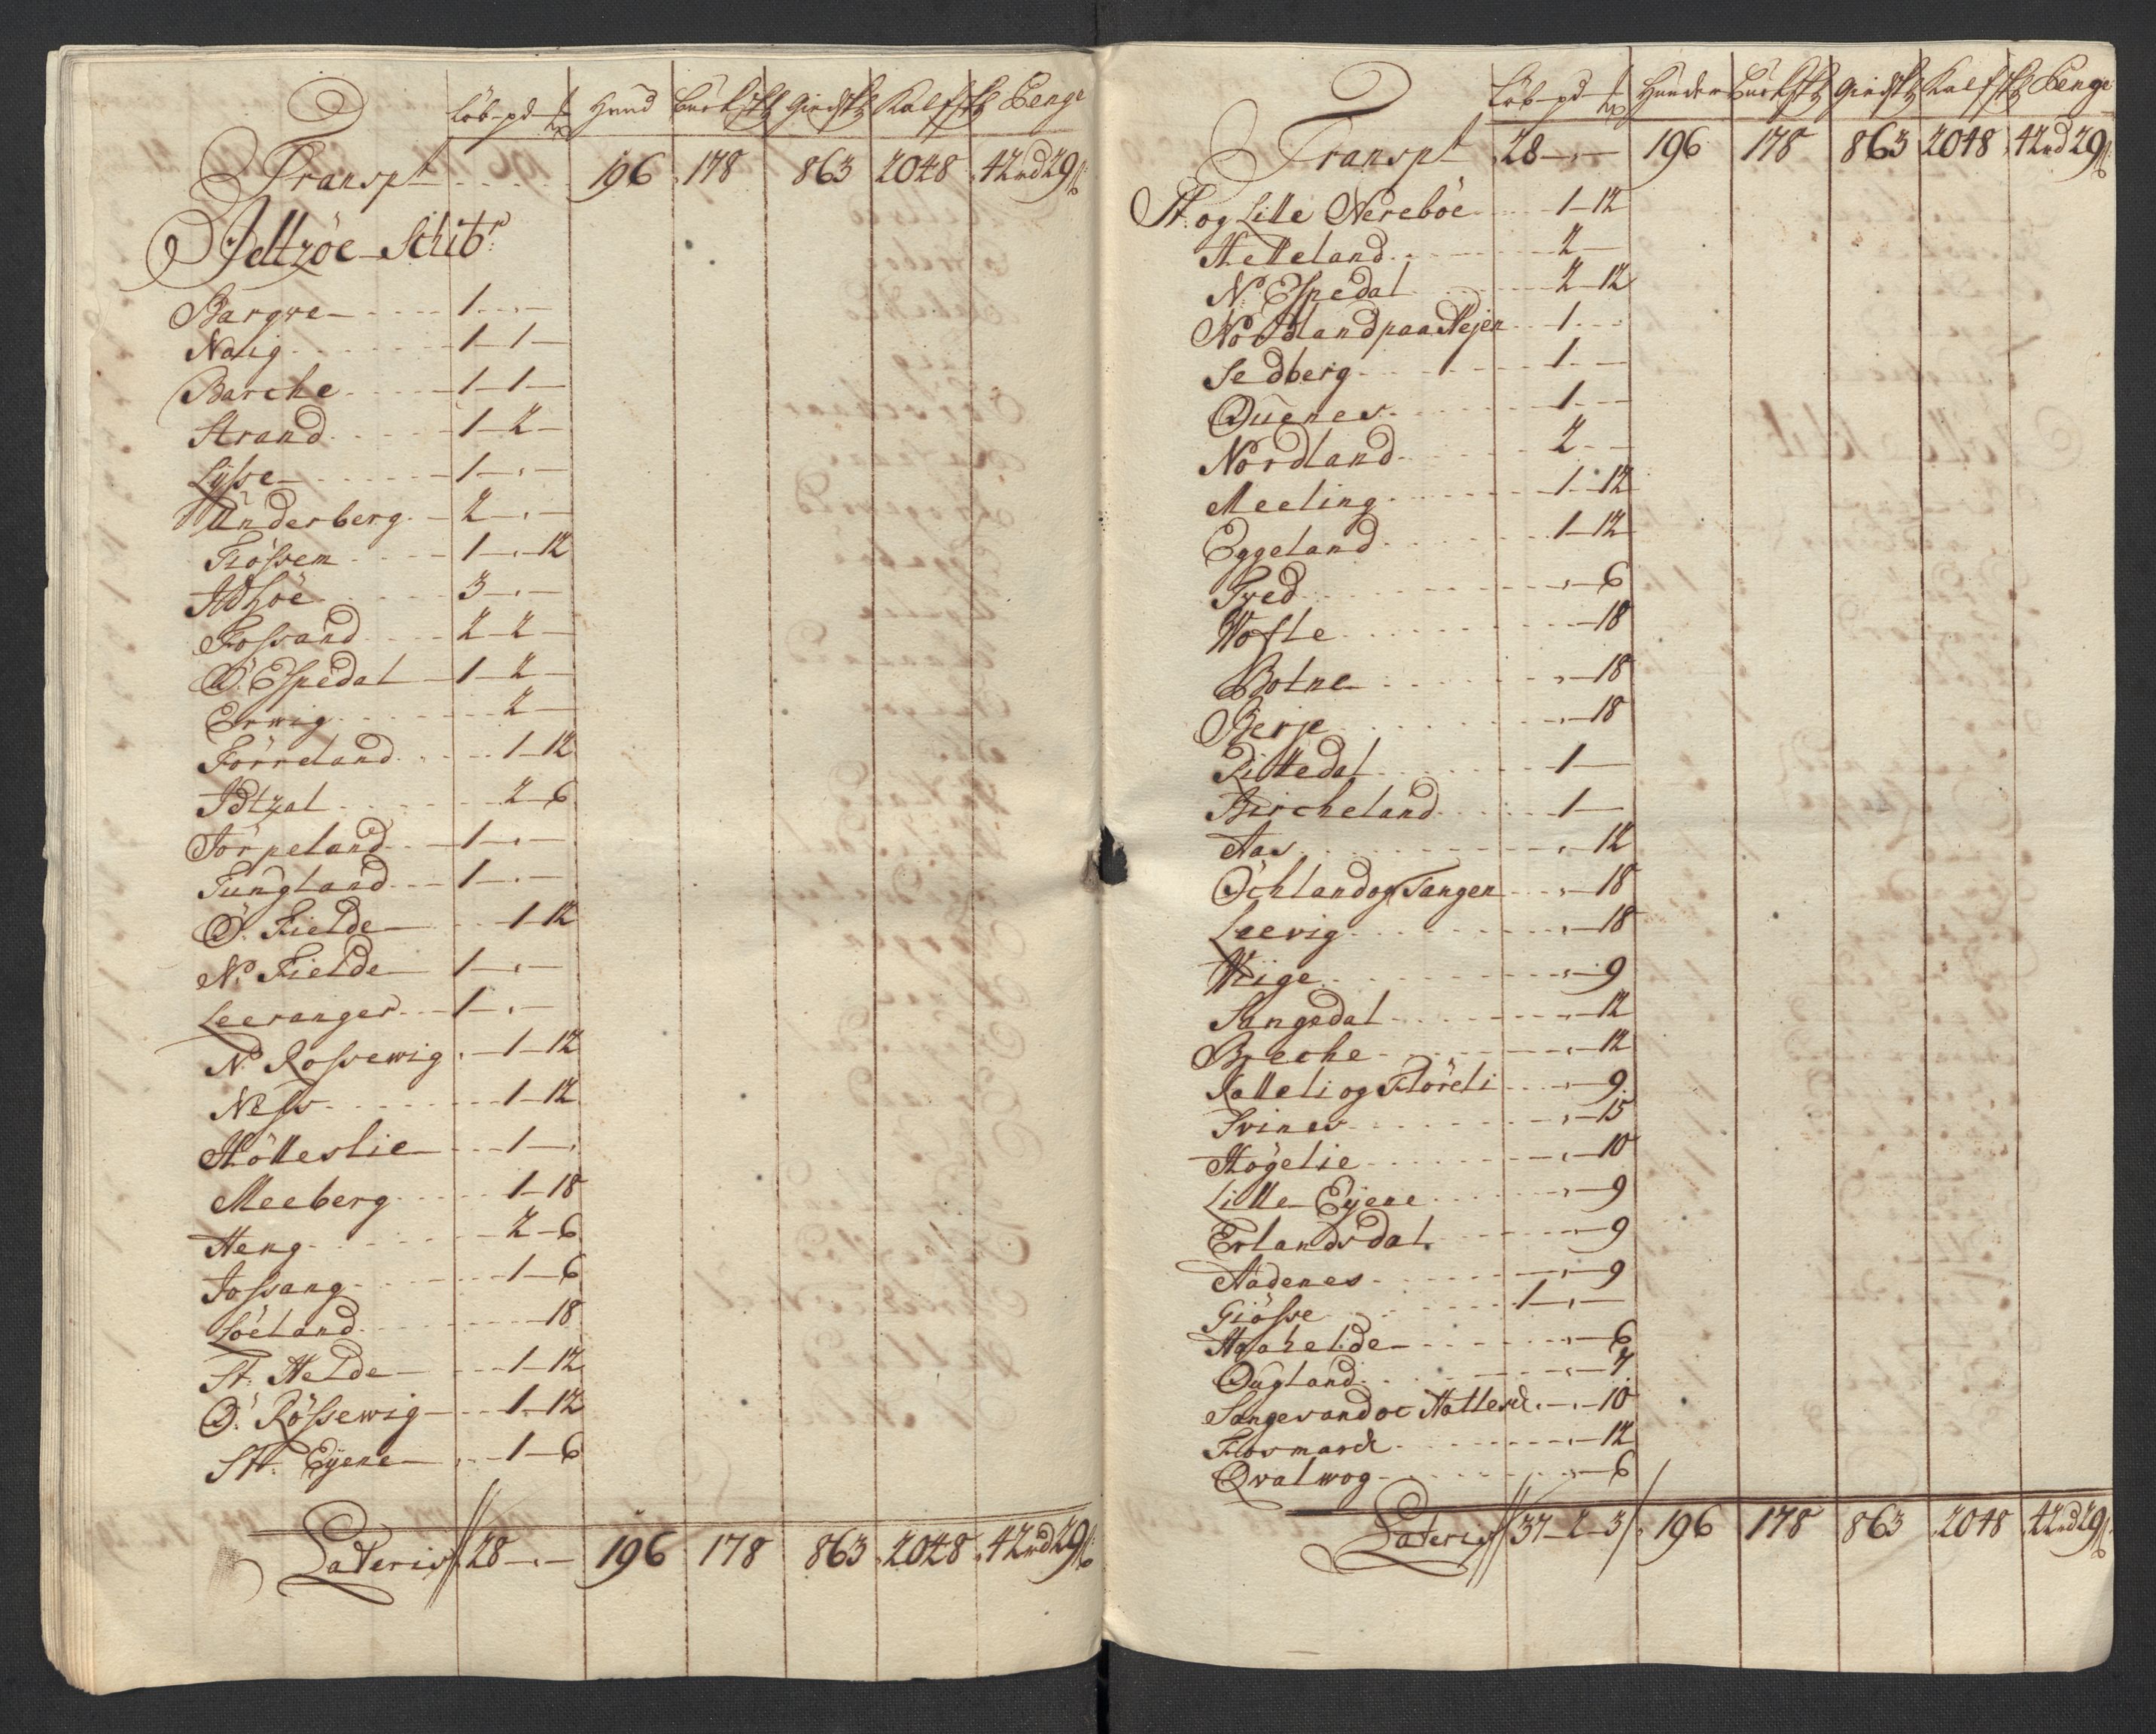 Löb-pd-℔ Hund Buckſk Giedſk Kalfſk Penge
Transpt 196 178 863 2048 42rd 29ſ
Idtzöe Schibr:
Bargre 1 - , -
Naig 1 - 1 -
Barche 1 - 1 -
Strand 1 - 2 -
Lÿsse 1 - , -
Underberg 2 - , -
Fiössem 1 - , - 12
Adzöe 3 - , -
Fossand 2 - 2 -
Ö: Espedal 1 - 2 -
Erwig 2 -
Förreland 1 - 12
Idtzal 2 - 6
Törpeland 1 - , -
Tungland 1 - , -
Ö: Fielde 1 - 12
N: Fielde 1 - , -
Leeranger 1 - , -
N: Rossewig , - 1 - 12
Ness 1 - 12
Hölleslie 1 - ,
Meeberg 1 - 18
Heng 2 - 6
Jossang 1 - 6
Löeland 18
St: Helde 1 - 12
Ö: Rössewig 1 - 12
St: Eÿene , - 1 - 6
Lateris 28 - , - 196 178 863 2048 42rd 29ſ
Löb-pd-℔ Hunder Buckſk Giedſk Kalfſk Penge
Transpt 28 - , - 196 178 863 2048 42rd 29ſ
St: og Lille Nereböe 1 - 12
Helleland 2 -
N: Espedal 2 - 12
Nordland paa Hejen 1 -
Sedberg 1 -
Quenes 1 -
Nordland 2 -
Meeling 1 - 12
Eggeland 1 - 12
Tved , - 6
Wofte - 18
Botne , - 18
Berje , - 18
Littedal 1 -
Bircheland 1 -
Aas , - 12
Öchland og Tangen , - 18
Leevig , - 18
Wiige , - 9
Sangedal , - 12
Breche , - 12
Kalleli og Flöreli , - 9
Svines , - 15
Högelie , - 10
Lille Eÿene , - 9
Erlandsdal - 9
Aadenes , - 9
Giösse 1 - , -
Haahelde , - 6
Dugland , - 7
Sangesand oc Hattesd , - 10
Flosmarck , - 12
Qvalwog , - 6
Lateris 37 - 2 - 3 196 178 863 2048 42rd 29ſ